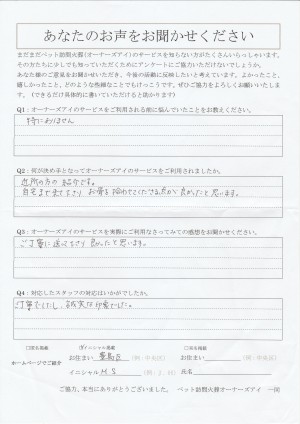 あなたのお声をお聞かせください
まだまだペット訪問火葬(オーナーズアイ)のサービスを知らない方がたくさんいらっしゃいます。
その方たちに少しでも知っていただくためにアンケートにご協力いただけないでしょうか。
あなた様のご意見をお聞かせいただき、今後の活動に反映したいと考えています。よかったこと、
嬉しかったこと、どのような些細なことでもけっこうです。ぜひご協力をよろしくお願いいたしま
す。(できるだけ具体的に書いていただけると助かります)
Q1:オーナーズアイのサービスをご利用される前に悩んでいたことをお教えください。
特にありません
Q2:何が決め手となってオーナーズアイのサービスをご利用されましたか。
近所の方の紹介です。
自宅まで来て下さり お骨も拾わせてくださる点が良かったと思います。
Q3:オーナーズアイのサービスを実際にご利用なさってみての感想をお聞かせください。
ご丁寧に送って下さり 良かったと思います。
Q4:対応したスタッフの対応はいかがでしたか。
丁寧でしたし、誠実な印象でした。
□匿名掲載 イニシャル掲載 □実名掲載
ホームページでご紹介
お住まい 豊島区 (例:中央区) お住まい (例:中央区)
イニシャル M S (例:Z.O) 氏名
ご協力、本当にありがとうございました。 ペット訪問火葬オーナーズアイ 一同